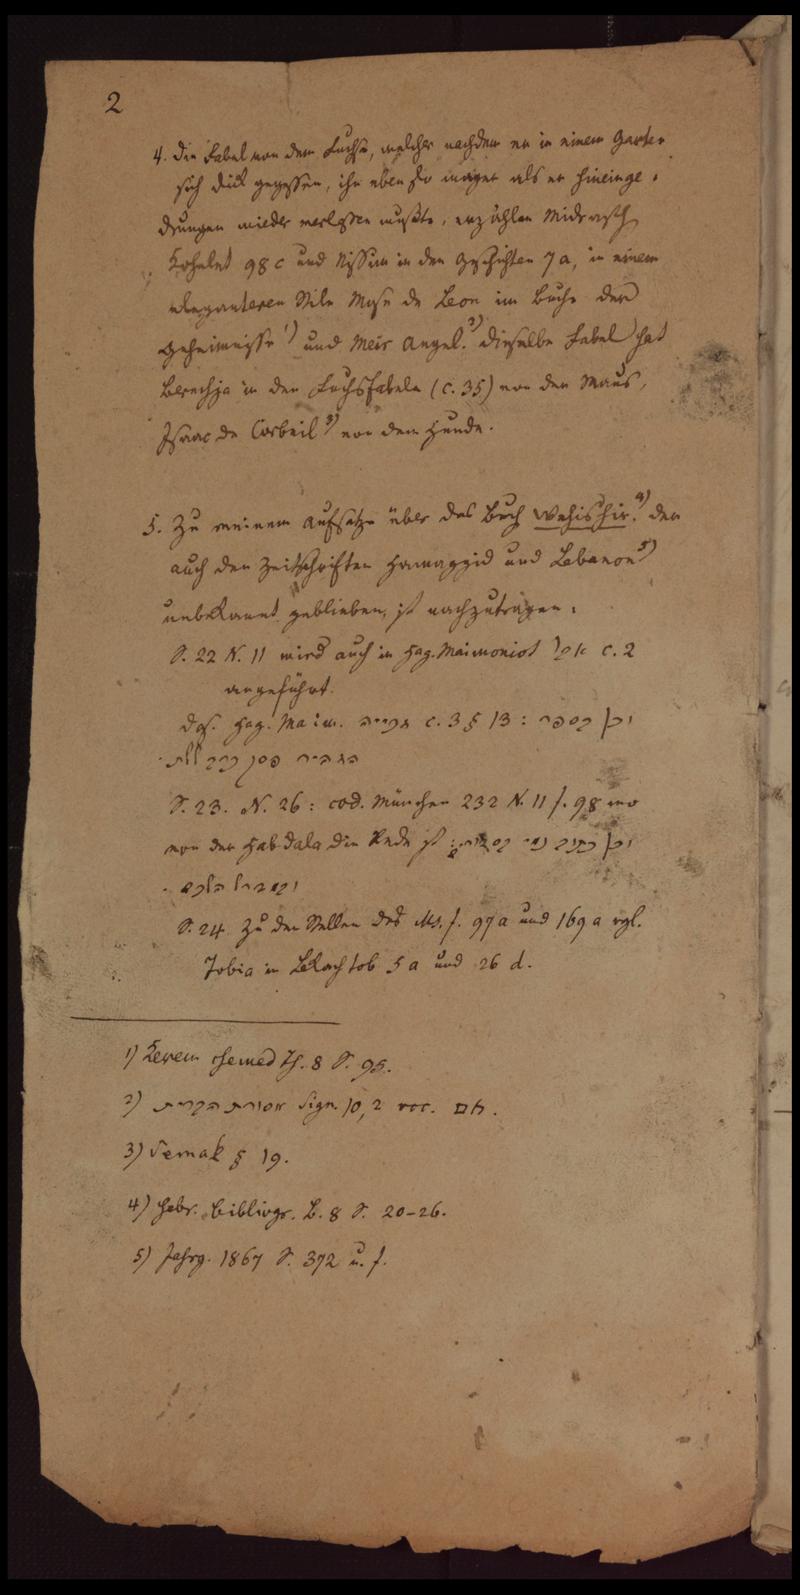 2
4. Die Fabel von dem Fuchse, welcher nachdem er in einem Garten
sich dick gegessen, ihn eben so mager als er hineinge-
drungen wieder verlassen musste, erzählen Midrasch
Kohelet 98c und Nissim in den Geschichten 7a, in einem
eleganteren Stile Mose de Leon im Buche der
Geheimnisse 1) und Meir Angel. 2) Dieselbe Fabel hat
Berechja in den Fuchsfabeln (c. 35) von der Maus,
Isaac de Corbeil 3) von dem Hunde.
5. Zu meinem Aufsatze über das Buch Wehishir, 4) der
auch den Zeitschriften Hamaggid und Lebanon 5)
unbekannt geblieben, ist nachzutragen:
S. 22 N. 11 wird auch in Hag. Maimoniot c. 2
angeführt.
Dgs. Hag. Maim. c. 3 § 13: וכן בספר
S. 23. N. 26: cod. München 232 N. 11 f. 98 wo
von der Habdala die Rede ist: וכן כתוב
S. 24 Zu den Stellen des Ms. f. 97a und 169a vgl.
Tobia in Lekach tob 5a und 26 d.
1) Kerem chemed Th. 8 S. 95.
2) מסורת הברית Sign. 10,2 voc. חם.
3) Semak § 19.
4) Hebr. Bibliogr. B. 8 S. 20-26.
5) Jahrg. 1867 S. 372 u. f.